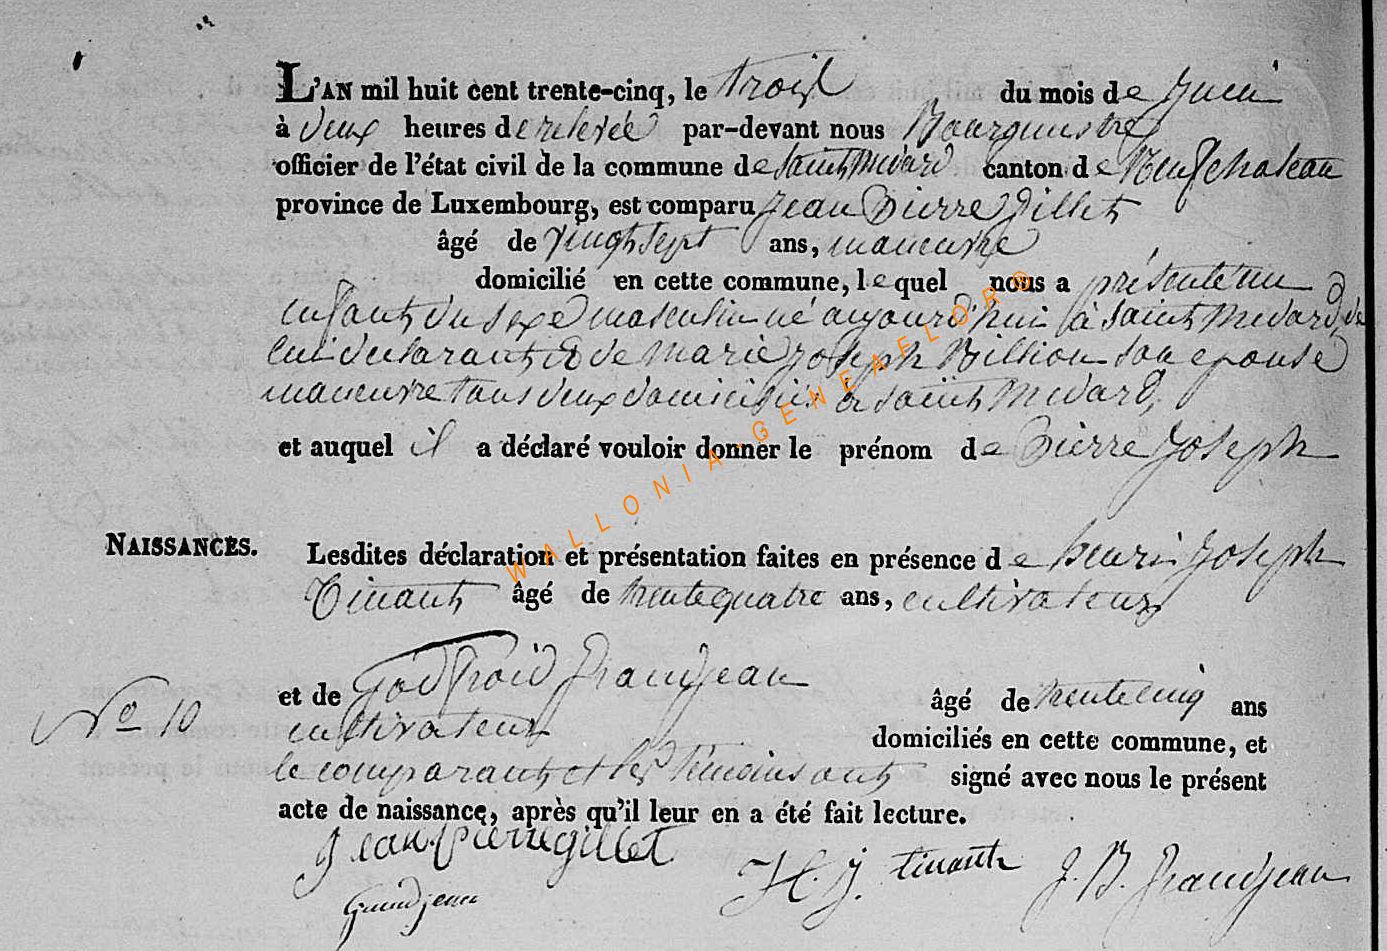 L'AN mil huit cent trente-cinq, le trois du mois de Juin
à deux heures de relevée par-devant nous Bourguestre
officier de l'état civil de la commune de saint Médard canton de Neufchateau
province de Luxembourg, est comparu Jean Pierre Gillet
âgé de vingt sept ans, maneuvre
domicilié en cette commune, lequel nous a présenté un
enfant du sexe masculin né aujourd'hui à saint Médard, de
lui déclarant & de Marie Joseph Billion son épouse
maneuvre tous deux domiciliés à saint Médard,
et auquel il a déclaré vouloir donner le prénom de Pierre Joseph
NAISSANCES.
Lesdites déclaration et présentation faites en présence de henri Joseph
Tinant âgé de trente quatre ans, cultivateur
et de Godfroid Grandjean âgé de trente cinq ans
No 10
cultivateur domiciliés en cette commune, et
le comparant et les témoins ont signé avec nous le présent
acte de naissance, après qu'il leur en a été fait lecture.
Jean pierre gillet
H. J. tinant J. B. Grandjean
Grandjean
WALLONIA-GENEAFLOR®